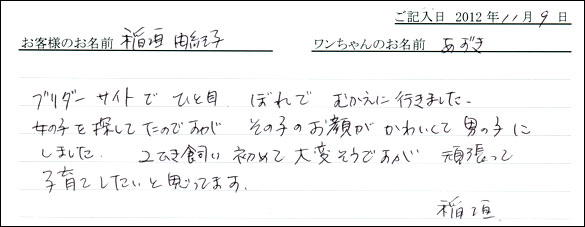 ご記入日 2012年11月9日
お客様のお名前 稲垣 由紀子 ワンちゃんのお名前 あずき
ブリダーサイトで ひと目 ぼれで むかえに行きました。
女の子を探してたのですが その子のお顔が かわいくて 男の子に
しました。 2ひき飼い 初めて 大変そうですが 頑張って
子育てしたいと思ってます。
稲垣